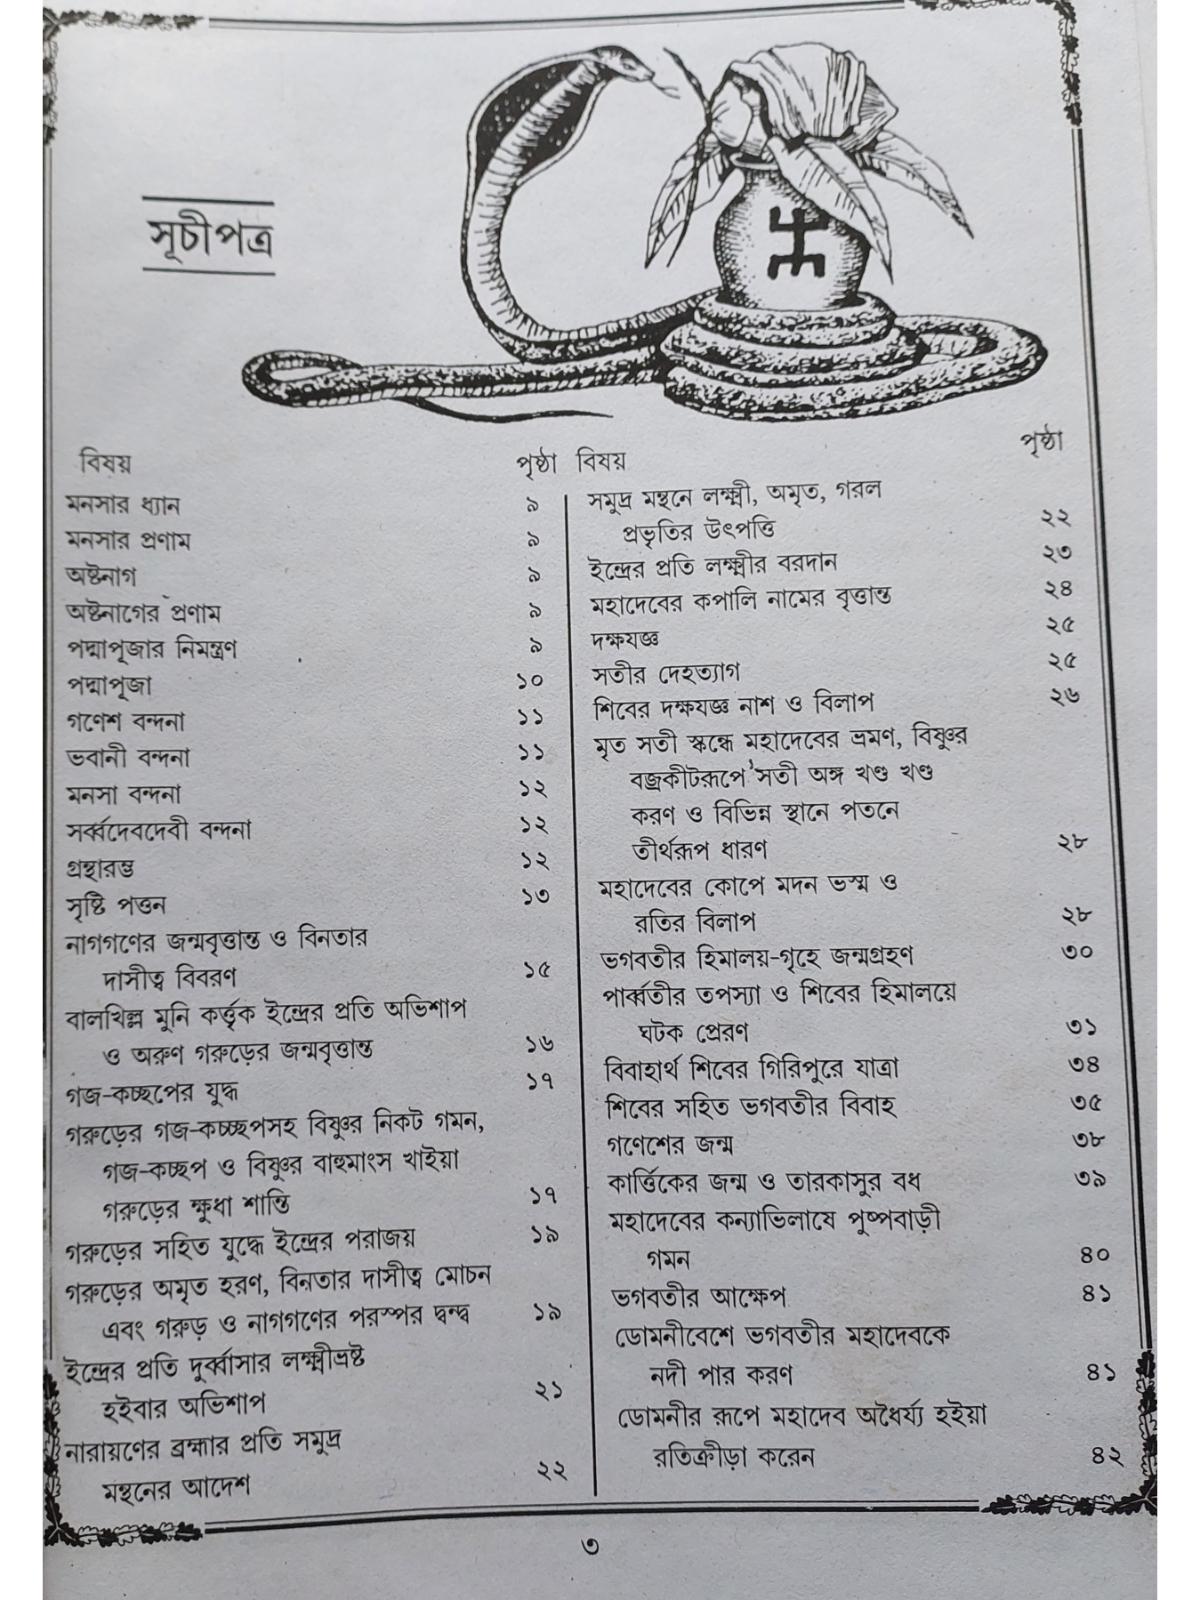 সূচীপত্র
বিষয় পৃষ্ঠা
মনসার ধ্যান ৯
মনসার প্রণাম ৯
অষ্টনাগ ৯
অষ্টনাগের প্রণাম ৯
পদ্মাপূজার নিমন্ত্রণ ৯
পদ্মাপূজা ১০
গণেশ বন্দনা ১১
ভবানী বন্দনা ১১
মনসা বন্দনা ১২
সর্ব্বদেবদেবী বন্দনা ১২
গ্রন্থারম্ভ ১২
সৃষ্টি পত্তন ১৩
নাগগণের জন্মবৃত্তান্ত ও বিনতার
দাসীত্ব বিবরণ ১৫
বালখিল্ল মুনি কর্ত্তৃক ইন্দ্রের প্রতি অভিশাপ
ও অরুণ গরুড়ের জন্মবৃত্তান্ত ১৬
গজ-কচ্ছপের যুদ্ধ ১৭
গরুড়ের গজ-কচ্ছপসহ বিষ্ণুর নিকট গমন,
গজ-কচ্ছপ ও বিষ্ণুর বাহুমাংস খাইয়া
গরুড়ের ক্ষুধা শান্তি ১৭
গরুড়ের সহিত যুদ্ধে ইন্দ্রের পরাজয় ১৯
গরুড়ের অমৃত হরণ, বিনতার দাসীত্ব মোচন
এবং গরুড় ও নাগগণের পরস্পর দ্বন্দ্ব ১৯
ইন্দ্রের প্রতি দুর্ব্বাসার লক্ষ্মীভ্রষ্ট
হইবার অভিশাপ ২১
নারায়ণের ব্রহ্মার প্রতি সমুদ্র
মন্থনের আদেশ ২২
বিষয় পৃষ্ঠা
সমুদ্র মন্থনে লক্ষ্মী, অমৃত, গরল
প্রভৃতির উৎপত্তি ২২
ইন্দ্রের প্রতি লক্ষ্মীর বরদান ২৩
মহাদেবের কপালি নামের বৃত্তান্ত ২৪
দক্ষযজ্ঞ ২৫
সতীর দেহত্যাগ ২৫
শিবের দক্ষযজ্ঞ নাশ ও বিলাপ ২৬
মৃত সতী স্কন্ধে মহাদেবের ভ্রমণ, বিষ্ণুর
বজ্রকীটরূপে সতী অঙ্গ খণ্ড খণ্ড
করণ ও বিভিন্ন স্থানে পতনে
তীর্থরূপ ধারণ ২৮
মহাদেবের কোপে মদন ভস্ম ও
রতির বিলাপ ২৮
ভগবতীর হিমালয়-গৃহে জন্মগ্রহণ ৩০
পার্ব্বতীর তপস্যা ও শিবের হিমালয়ে
ঘটক প্রেরণ ৩১
বিবাহার্থ শিবের গিরিপুরে যাত্রা ৩৪
শিবের সহিত ভগবতীর বিবাহ ৩৫
গণেশের জন্ম ৩৮
কার্ত্তিকের জন্ম ও তারকাসুর বধ ৩৯
মহাদেবের কন্যাভিলাষে পুষ্পবাড়ী
গমন ৪০
ভগবতীর আক্ষেপ ৪১
ডোমনীবেশে ভগবতীর মহাদেবকে
নদী পার করণ ৪১
ডোমনীর রূপে মহাদেব অধৈর্য্য হইয়া
রতিক্রীড়া করেন ৪২
৩